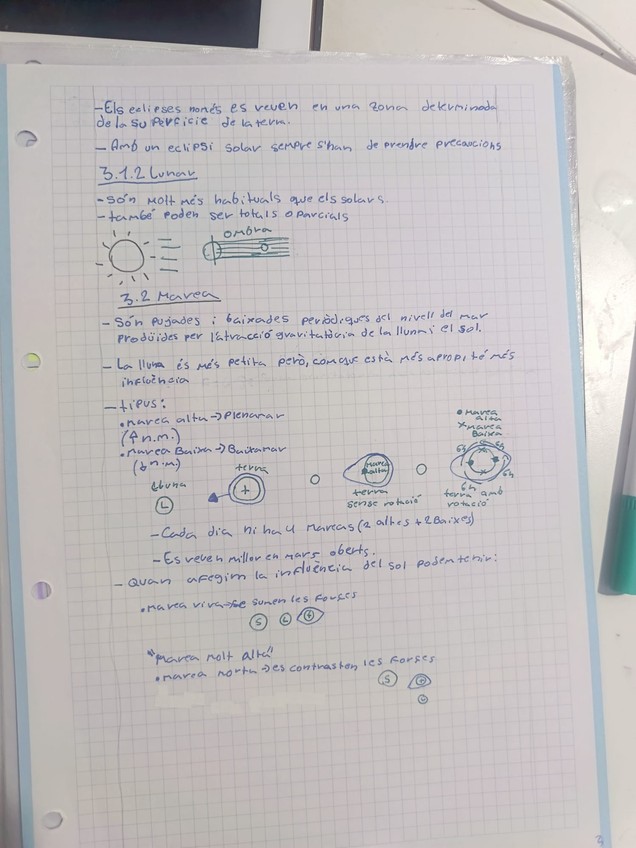 -Els eclipses només es veuen en una zona determinada
de la superficie de la terra.
- Amb un eclipsi solar sempre s'han de prendre precaucions
3.1.2 Lunar
- són molt més habituals que els solars.
- també poden ser totals o parcials
ombra
3.2 Marea
- Són pujades i baixades periòdiques del nivell del mar
produïdes per l'atracció gravitatòria de la lluna i el sol.
- La lluna és més petita però, com que està més aprop, té més
influència
- tipus:
• marea alta → Plenamar
(↑ n.m.)
• marea Baixa → Baixamar
(↓ n.m.)
lluna
L
terra
+
marea
alta
terra
sense rotació
• Marea
alta
x marea
Baixa
6h
6h
6h
6h
terra amb
rotació
- Cada dia hi ha 4 marees (2 altes + 2 Baixes)
- Es veuen millor en mars oberts.
- Quan afegim la influència del sol podem tenir:
• marea viva → se sumen les forses
S L t
"marea molt alta"
• marea morta → es contrasten les forses
S
L